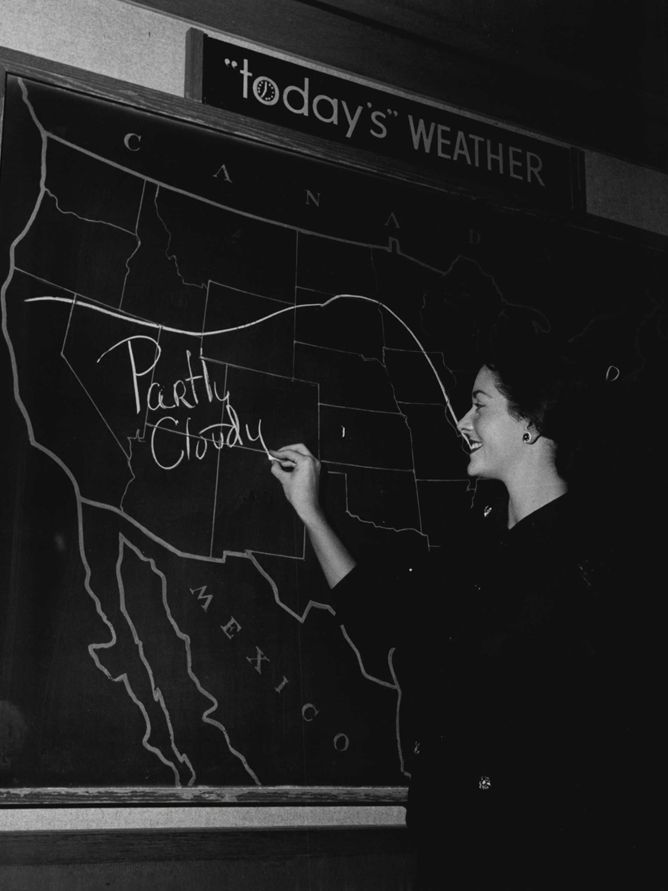 "today's" WEATHER
CANAD
Partly
Cloudy
MEXICO